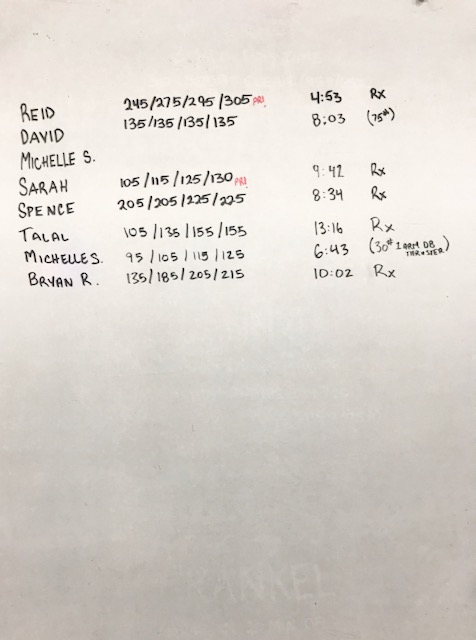 REID 245/275/295/305 PR! 4:53 Rx
DAVID 135/135/135/135 8:03 (75#)
MICHELLE S.
SARAH 105/115/125/130 PR! 9:42 Rx
SPENCE 205/205/225/225 8:34 Rx
TALAL 105/135/155/155 13:16 Rx
MICHELLE S. 95/105/115/125 6:43 (30# 1 ARM DB THRUSTER)
BRYAN R. 135/185/205/215 10:02 Rx